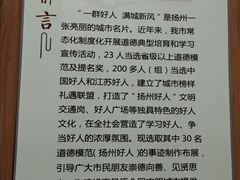 言
“一群好人 满城新风”是扬州一
张亮丽的城市名片。近年来，我市常
态化制度化开展道德典型培育和学习
宣传活动，23人当选省级以上道德模
范及提名奖，200多人（组）当选中
国好人和江苏好人，建立了城市榜样
礼遇联盟，打造了“扬州好人”文明
交通岗、好人广场等独具特色的好人
文化，在全社会营造了学习好人、争
当好人的浓厚氛围。现选取其中30名
道德模范（扬州好人）的事迹制作布展，
引导广大市民朋友崇德向善、见贤思